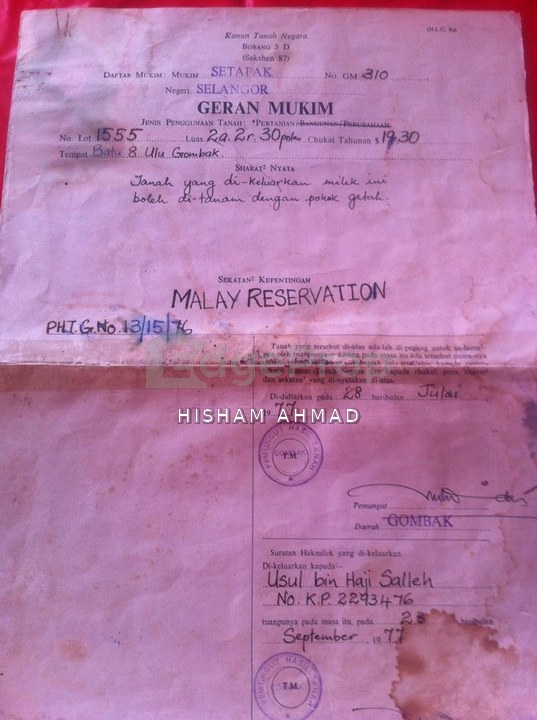 (N.L.C. 5d)
Kanun Tanah Negara
BORANG 5 D
(Sekshen 87)
DAFTAR MUKIM: MUKIM SETAPAK No. GM 310
Negeri SELANGOR
GERAN MUKIM
JENIS PENGGUNAAN TANAH: *PERTANIAN/BANGUNAN/PERUSAHAAN
No. Lot 1555 Luas 2a. 2r. 30poles Chukai Tahunan $ 19.30
Tempat Batu 8 Ulu Gombak
SHARAT² NYATA
Tanah yang di-keluarkan milek ini
boleh di-tanam dengan pokok getah.
SEKATAN² KEPENTINGAN
MALAY RESERVATION
PHT.G.No. 13/15/76
Tanah yang tersebut di-atas ada-lah di-pegang untok sa-lama²
dan sekatan² yang di-nyatakan di-atas.
Di-daftarkan pada 28 haribulan Julai
1977
EdgeProp
HISHAM AHMAD
PEMUNGUT HASIL TANAH
GOMBAK
T.M.
Pemungut
Daerah GOMBAK
Suratan Hakmilek yang di-keluarkan.
Di-keluarkan kapada:-
Usul bin Haji Salleh
No. K.P. 2293476
tuanpunya pada masa itu, pada 28 haribulan
September 1977
PEMUNGUT HASIL TANAH
T.M.